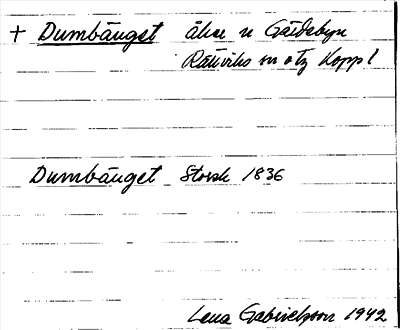 + Dumbänget åker n Gärdebyn
Rättviks sn o tg Koppl
Dumbänget Storsk 1836
Lena Gabrielsson 1942